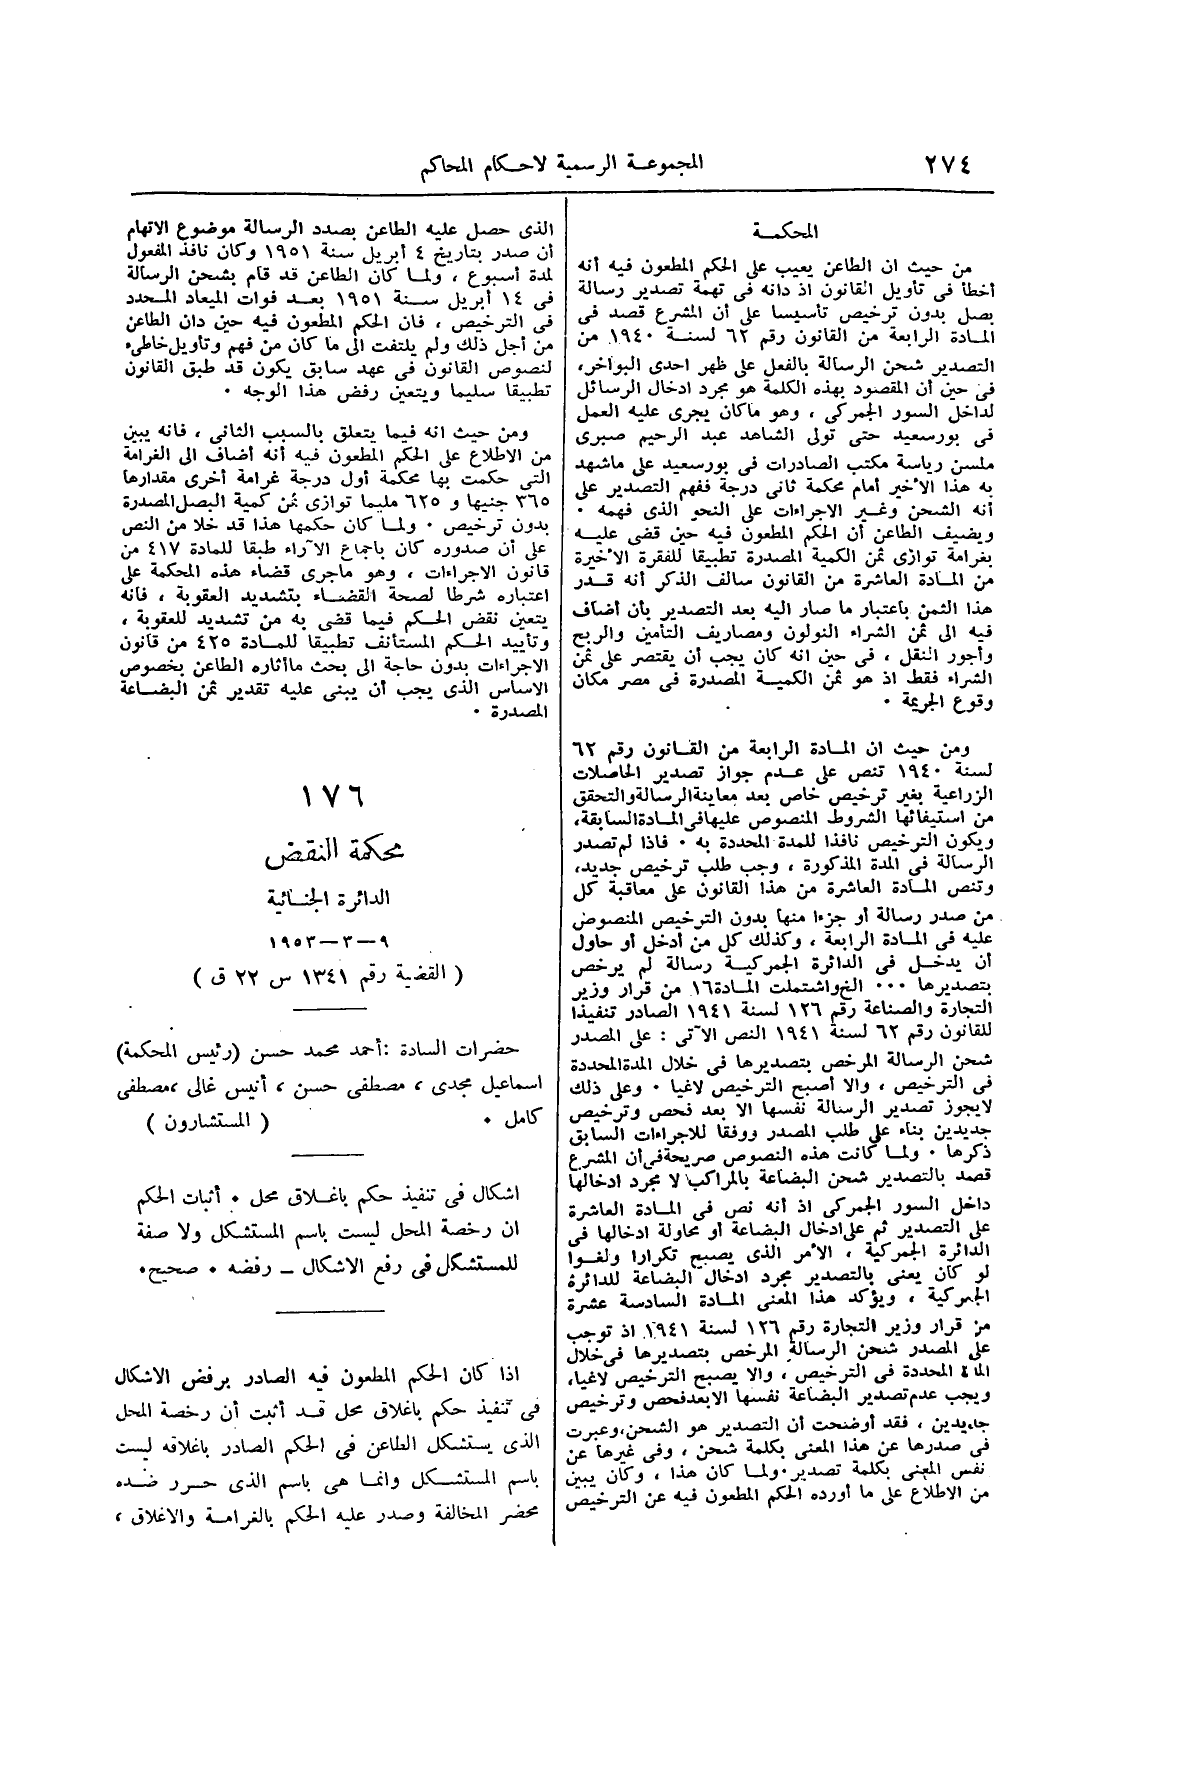 ٢٧٤
المجموعة الرسمية لاحكام المحاكم
المحكمة
من حيث ان الطاعن يعيب على الحكم المطعون فيه أنه
أخطأ فى تأويل القانون اذ دانه فى تهمة تصدير رسالة
بصل بدون ترخيص تأسيسا على أن المشرع قصد فى
المادة الرابعة من القانون رقم ٦٢ لسنة ١٩٤٠ من
التصدير شحن الرسالة بالفعل على ظهر احدى البواخر،
فى حين أن المقصود بهذه الكلمة هو مجرد ادخال الرسائل
لداخل السور الجمركى ، وهو ماكان يجرى عليه العمل
فى بورسعيد حتى تولى الشاهد عبد الرحيم صبرى
ملسن رياسة مكتب الصادرات فى بورسعيد على ماشهد
به هذا الأخير أمام محكمة ثانى درجة ففهم التصدير على
أنه الشحن وغير الاجراءات على النحو الذى فهمه ٠
ويضيف الطاعن أن الحكم المطعون فيه حين قضى عليه
بغرامة توازى ثمن الكمية المصدرة تطبيقا للفقرة الأخيرة
من المادة العاشرة من القانون سالف الذكر أنه قدر
هذا الثمن باعتبار ما صار اليه بعد التصدير بأن أضاف
فيه الى ثمن الشراء النولون ومصاريف التأمين والربح
وأجور النقل ، فى حين انه كان يجب أن يقتصر على ثمن
الشراء فقط اذ هو ثمن الكمية المصدرة فى مصر مكان
وقوع الجريمة ٠
ومن حيث ان المادة الرابعة من القانون رقم ٦٢
لسنة ١٩٤٠ تنص على عدم جواز تصدير الحاصلات
الزراعية بغير ترخيص خاص بعد معاينة الرسالة والتحقق
من استيفائها الشروط المنصوص عليها فى المادة السابقة،
ويكون الترخيص نافذا للمدة المحددة به ٠ فاذا لم تصدر
الرسالة فى المدة المذكورة ، وجب طلب ترخيص جديد،
وتنص المادة العاشرة من هذا القانون على معاقبة كل
من صدر رسالة أو جزءا منها بدون الترخيص المنصوص
عليه فى المادة الرابعة ، وكذلك كل من أدخل أو حاول
أن يدخل فى الدائرة الجمركية رسالة لم يرخص
بتصديرها ٠٠٠ الخ واشتملت المادة ١٦ من قرار وزير
التجارة والصناعة رقم ١٢٦ لسنة ١٩٤١ الصادر تنفيذا
للقانون رقم ٦٢ لسنة ١٩٤١ النص الآتى : على المصدر
شحن الرسالة المرخص بتصديرها فى خلال المدة المحددة
فى الترخيص ، والا أصبح الترخيص لاغيا ٠ وعلى ذلك
لايجوز تصدير الرسالة نفسها الا بعد فحص وترخيص
جديدين بناء على طلب المصدر ووفقا للاجراءات السابق
ذكرها ٠ ولما كانت هذه النصوص صريحة فى أن المشرع
قصد بالتصدير شحن البضاعة بالمراكب لا مجرد ادخالها
داخل السور الجمركى اذ أنه نص فى المادة العاشرة
على التصدير ثم على ادخال البضاعة أو محاولة ادخالها فى
الدائرة الجمركية ، الأمر الذى يصبح تكرارا ولغوا
لو كان يعنى بالتصدير مجرد ادخال البضاعة للدائرة
الجمركية ، ويؤكد هذا المعنى المادة السادسة عشرة
من قرار وزير التجارة رقم ١٢٦ لسنة ١٩٤١ اذ توجب
على المصدر شحن الرسالة المرخص بتصديرها فى خلال
المدة المحددة فى الترخيص ، والا يصبح الترخيص لاغيا،
ويجب عدم تصدير البضاعة نفسها الا بعد فحص وترخيص
جديدين ، فقد أوضحت أن التصدير هو الشحن، وعبرت
فى صدرها عن هذا المعنى بكلمة شحن ، وفى غيرها عن
نفس المعنى بكلمة تصدير ٠ ولما كان هذا ، وكان يبين
من الاطلاع على ما أورده الحكم المطعون فيه عن الترخيص
الذى حصل عليه الطاعن بصدد الرسالة موضوع الاتهام
أن صدر بتاريخ ٤ أبريل سنة ١٩٥١ وكان نافذ المفعول
لمدة أسبوع ، ولما كان الطاعن قد قام بشحن الرسالة
فى ١٤ أبريل سنة ١٩٥١ بعد فوات الميعاد المحدد
فى الترخيص ، فان الحكم المطعون فيه حين دان الطاعن
من أجل ذلك ولم يلتفت الى ما كان من فهم وتأويل خاطىء
لنصوص القانون فى عهد سابق يكون قد طبق القانون
تطبيقا سليما ويتعين رفض هذا الوجه ٠
ومن حيث انه فيما يتعلق بالسبب الثانى ، فانه يبين
من الاطلاع على الحكم المطعون فيه أنه أضاف الى الغرامة
التى حكمت بها محكمة أول درجة غرامة أخرى مقدارها
٣٦٥ جنيها و ٦٢٥ مليما توازى ثمن كمية البصل المصدرة
بدون ترخيص ٠ ولما كان حكمها هذا قد خلا من النص
على أن صدوره كان باجماع الآراء طبقا للمادة ٤١٧ من
قانون الاجراءات ، وهو ماجرى قضاء هذه المحكمة على
اعتباره شرطا لصحة القضاء بتشديد العقوبة ، فانه
يتعين نقض الحكم فيما قضى به من تشديد للعقوبة ،
وتأييد الحكم المستأنف تطبيقا للمادة ٤٢٥ من قانون
الاجراءات بدون حاجة الى بحث ماآثاره الطاعن بخصوص
الاساس الذى يجب أن يبنى عليه تقدير ثمن البضاعة
المصدرة ٠
١٧٦
محكمة النقض
الدائرة الجنائية
٩ – ٣ – ١٩٥٣
( القضية رقم ١٣٤١ س ٢٢ ق )
حضرات السادة : أحمد محمد حسن (رئيس المحكمة)
اسماعيل مجدى ، مصطفى حسن ، أنيس غالى ، مصطفى
كامل ٠ ( المستشارون )
اشكال فى تنفيذ حكم باغلاق محل ٠ أثبات الحكم
ان رخصة المحل ليست باسم المستشكل ولا صفة
للمستشكل فى رفع الاشكال ــ رفضه ٠ صحيح٠
اذا كان الحكم المطعون فيه الصادر برفض الاشكال
فى تنفيذ حكم باغلاق محل قد أثبت أن رخصة المحل
الذى يستشكل الطاعن فى الحكم الصادر باغلاقه ليست
باسم المستشكل وانما هى باسم الذى حرر ضده
محضر المخالفة وصدر عليه الحكم بالغرامة والاغلاق ،